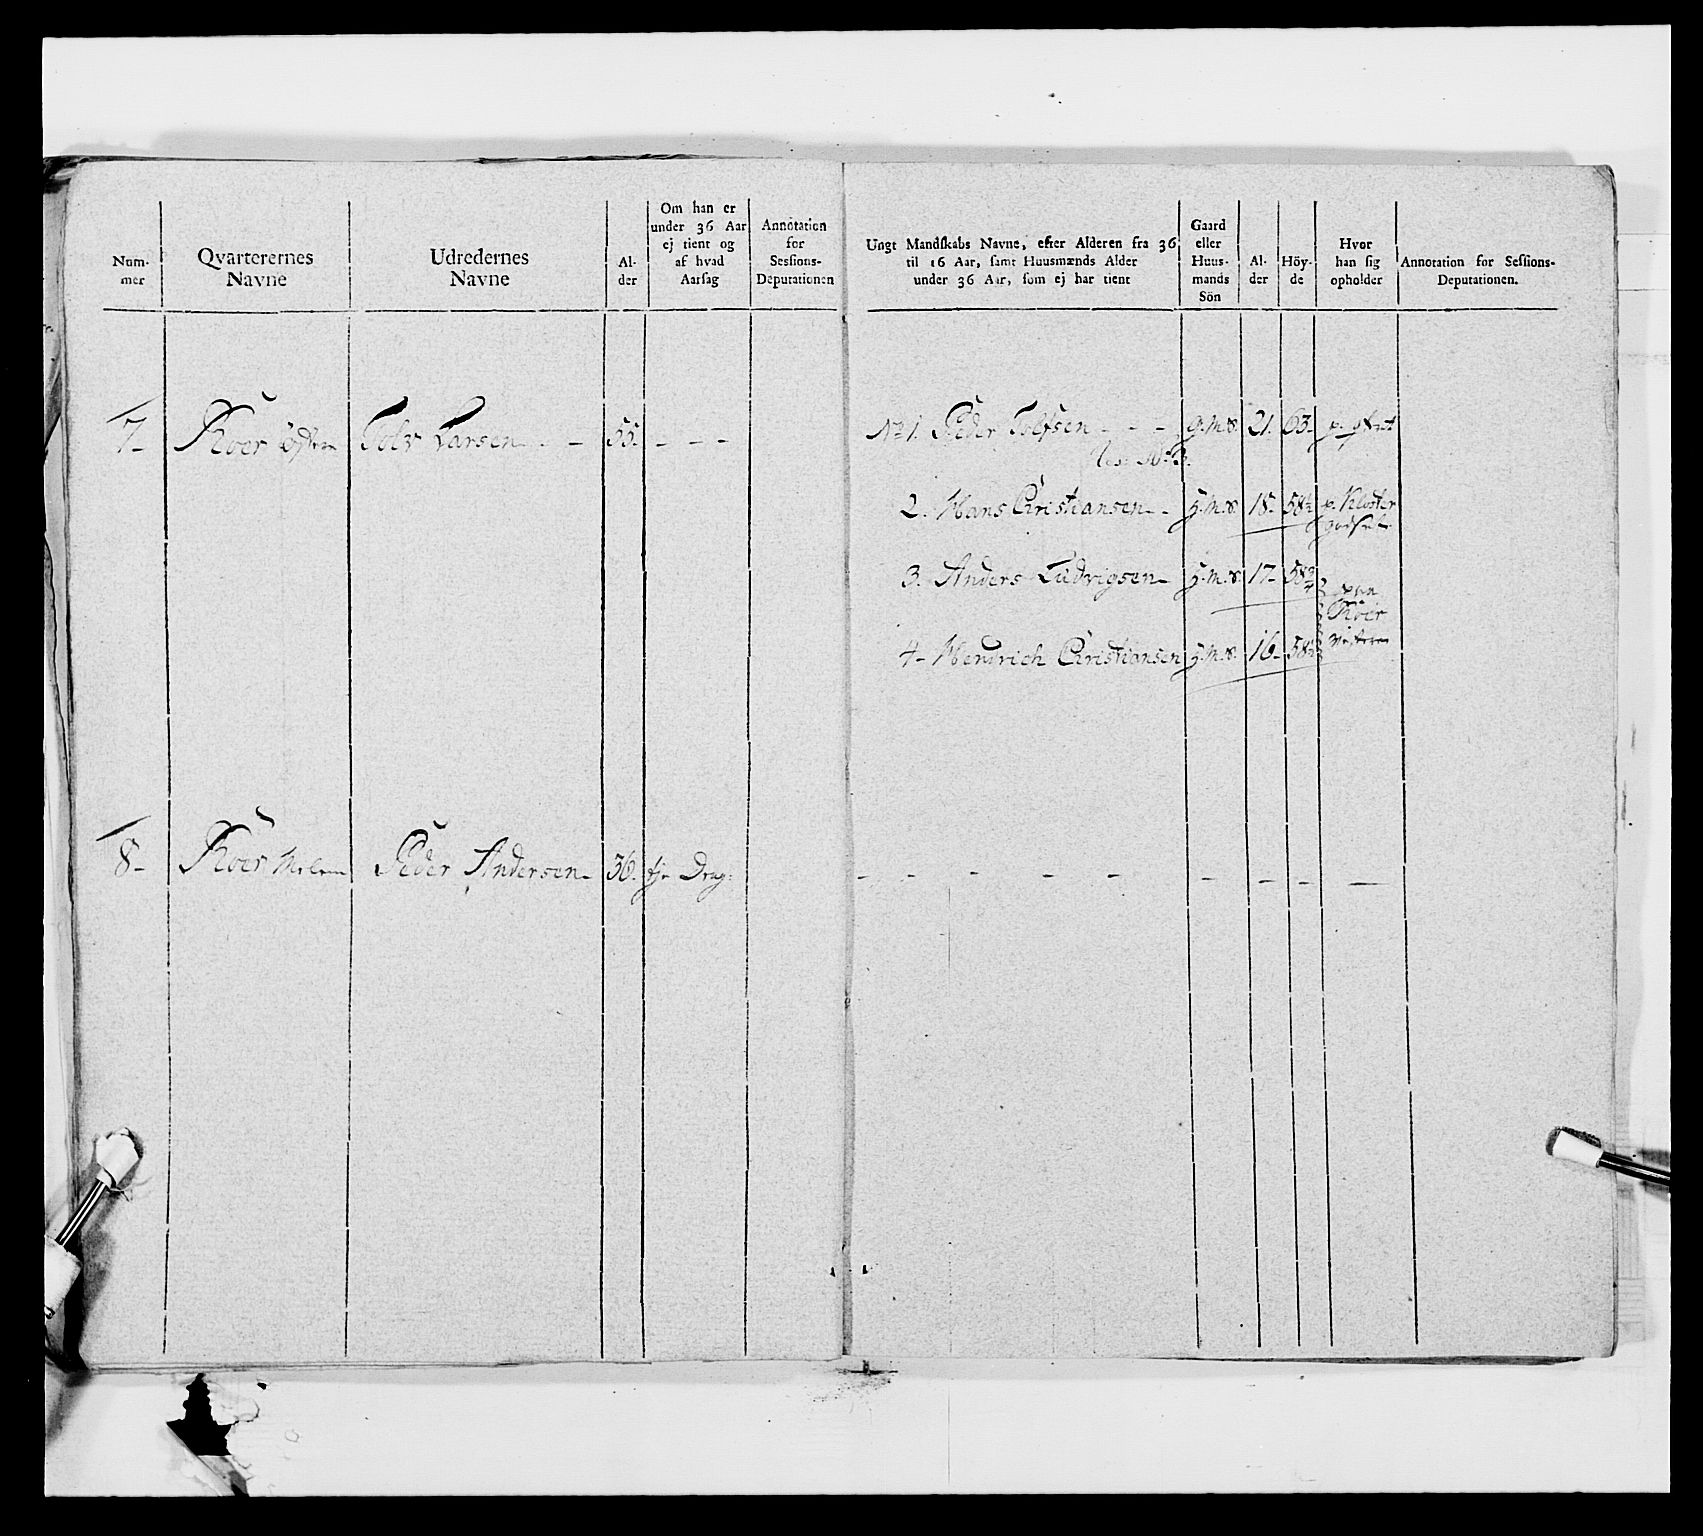 Num-
mer
Qvarterernes
Navne
Udredernes
Navne
Al-
der
Om han er
under 36 Aar
ej tient og
af hvad
Aarsag
Annotation
for
Sessions-
Deputationen
Ungt Mandskabs Navne, efter Alderen fra 36
til 16 Aar, samt Huusmænds Alder
under 36 Aar, som ej har tient
Gaard
eller
Huus-
mands
Sön
Al-
der
Höy-
de
Hvor
han sig
opholder
Annotation for Sessions-
Deputationen.
7- Röer östre Tolv Larsen - - 55. - - -
No 1. Peder Tolfsen - - - g.m.s. 21. 63-
2. Hans Christiansen - - h.m.s. 18- 58½ p. Kloster
godset.
3. Anders Ludvigsen - h.m.s. 17- 58¾
Röer
4- Hendrich Christiansen h.m.s. 16- 58½
8- Röer Melem Peder Andersen - 36. tj. Drag:
- - - - - - - - -